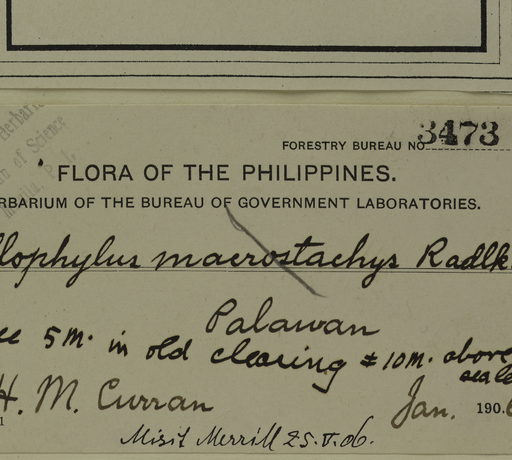 Herbari
of Science
Manila, P. I.
FORESTRY BUREAU NO 3473
FLORA OF THE PHILIPPINES.
RBARIUM OF THE BUREAU OF GOVERNMENT LABORATORIES.
llophylus macrostachys Radlk
Palawan
ee 5 M. in old clearing ± 10 M. above
seale
H. M. Curran Jan. 190.6
1
Misit Merrill 25.V.06.